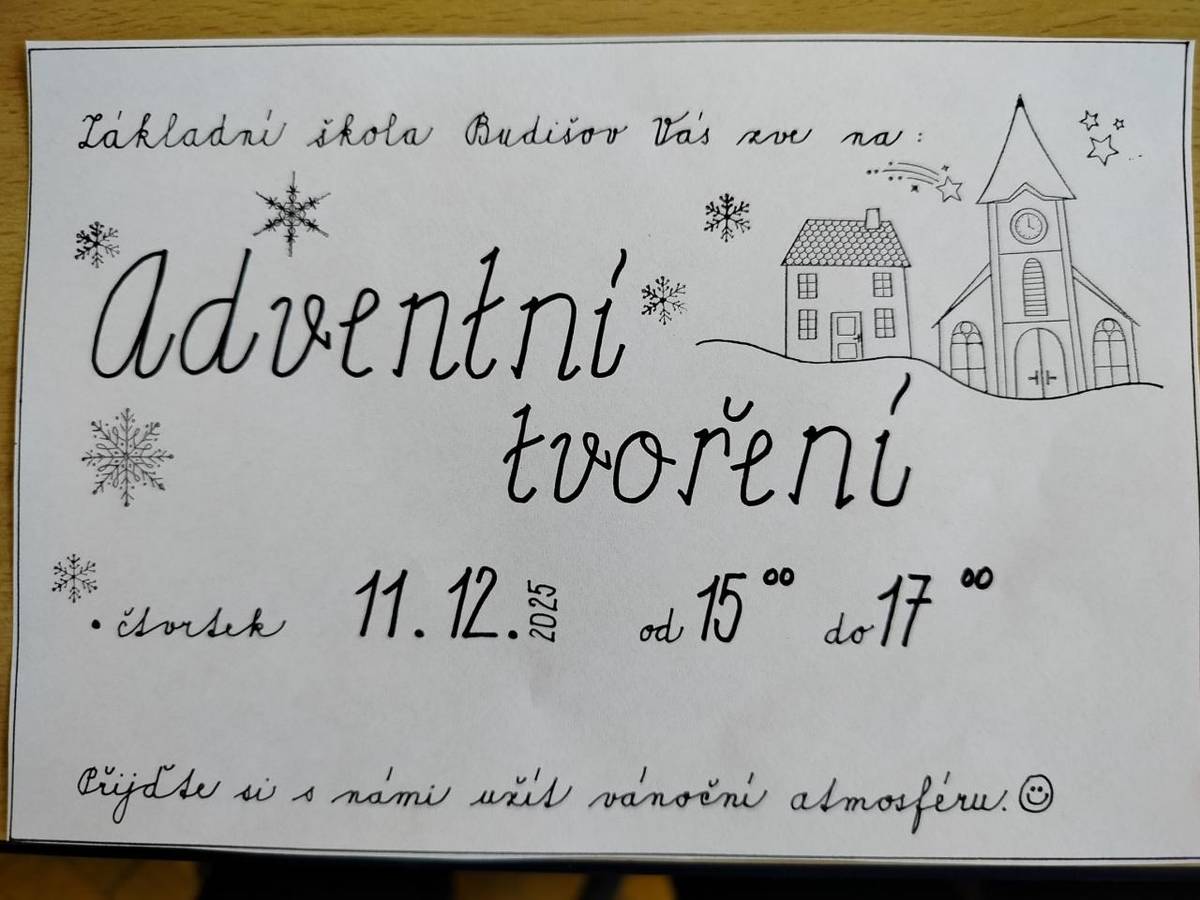 Základní škola Budišov Vás zve na:
Adventní
tvoření
• čtvrtek 11. 12. 2025 od 15 00 do 17 00
Přijďte si s námi užít vánoční atmosféru. ☺